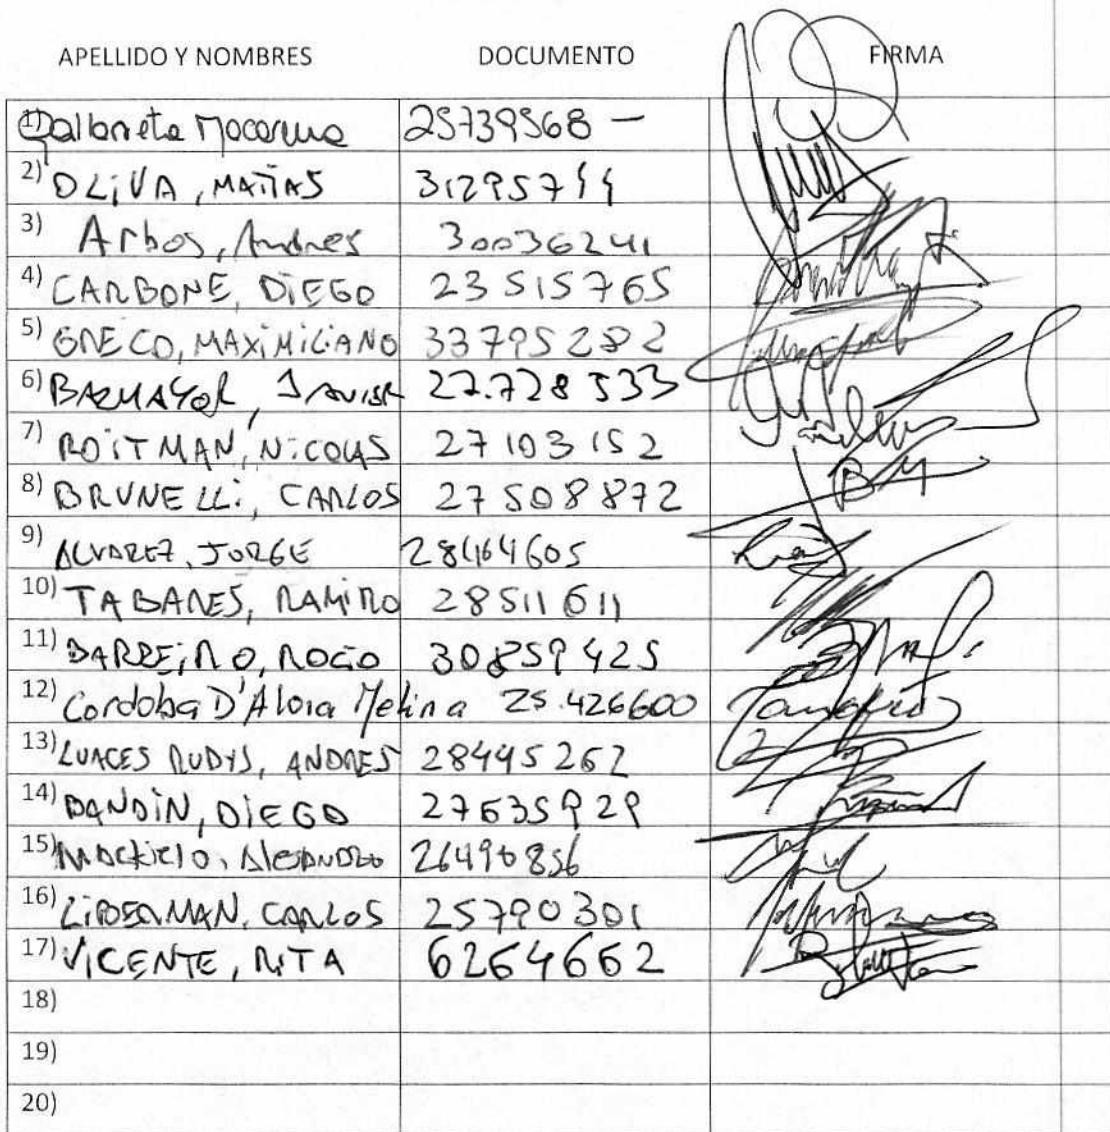 APELLIDO Y NOMBRES DOCUMENTO FIRMA
1) 25739568 –
2) OLIVA, MATÍAS
3) Arbos, Andres 30036241
4) CARBONE, DIEGO 23515765
5) GRECO, MAXIMILIANO 33795282
6) 27.728533
7) ROITMAN, NICOLAS 27103152
8) BRUNELLI, CARLOS 27508872
9) ALVAREZ, JORGE 28464605
10) TABARES, RAMIRO 28511611
11) BARREIRO, ROCIO 30859425
12) Cordoba D'Aloia Melina 25.426600
13) LUACES RUDYS, ANDRES 28495262
14) BANDIN, DIEGO 27635929
15)
16) CARLOS 25790301
17) VICENTE, RITA 6264662
18)
19)
20)